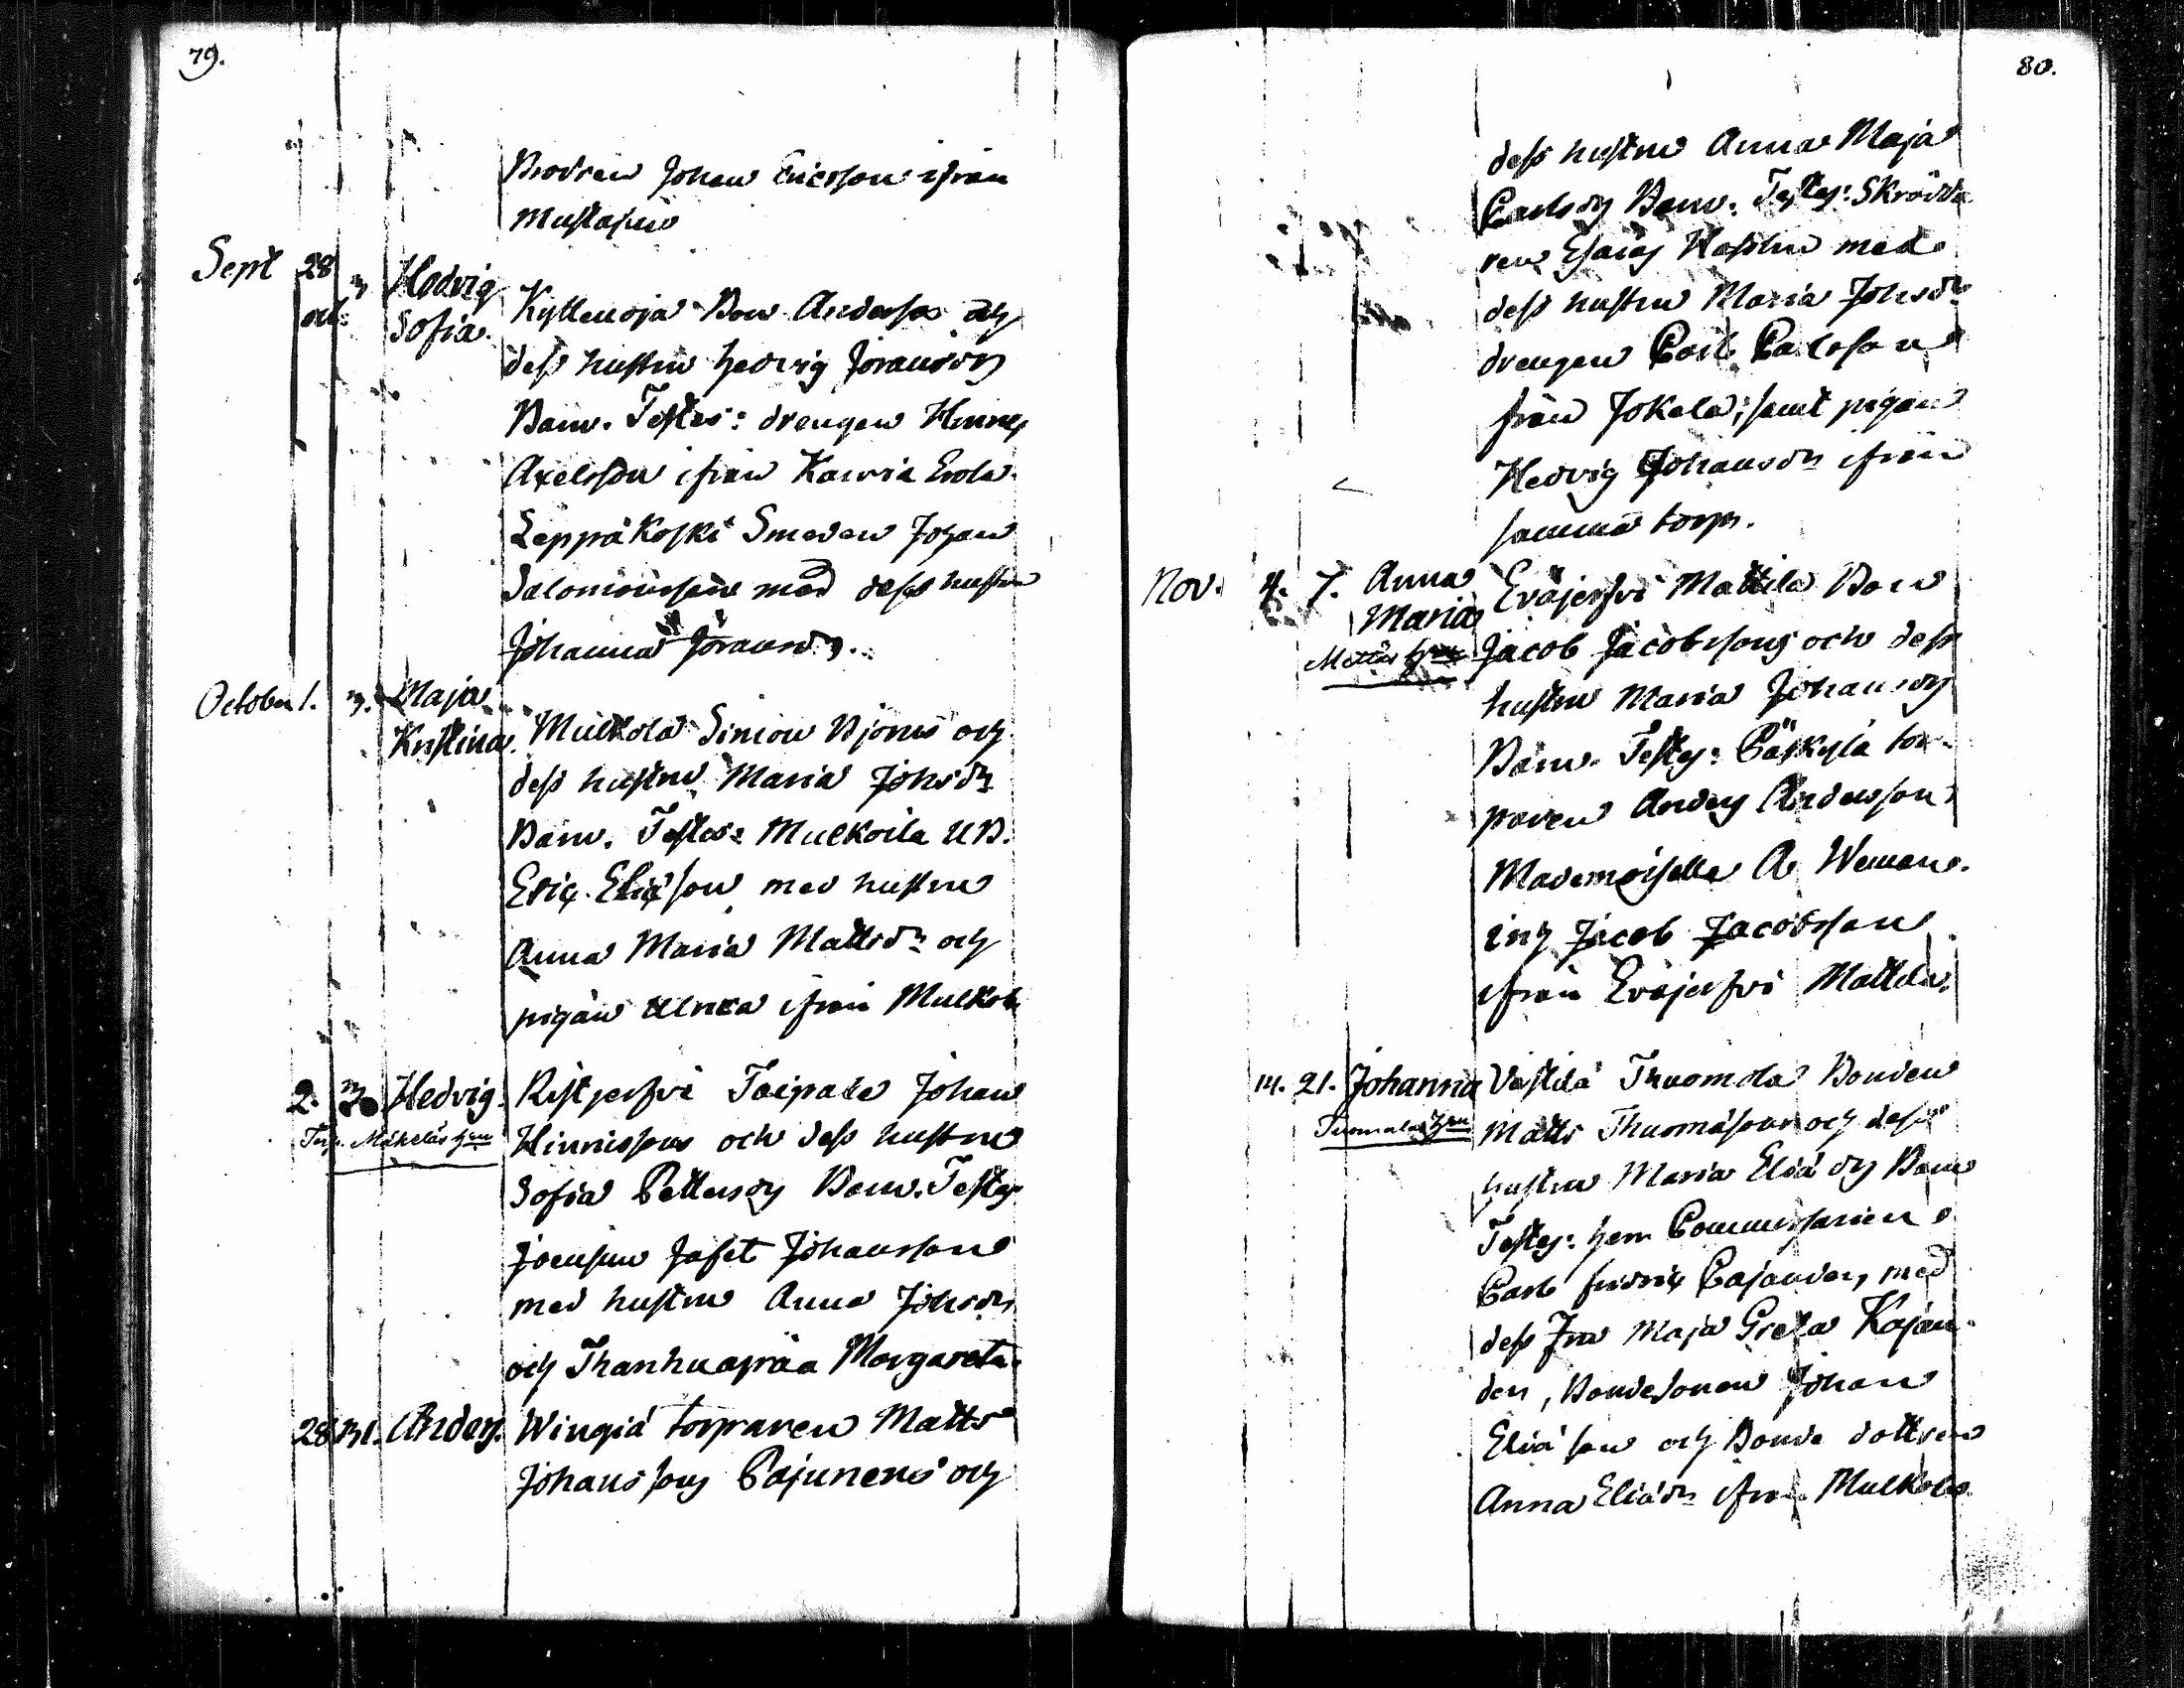 79.
Brodren Johan Ericsson ifrån
Mustajerw
Sept 28 3 Hedvig
oct: Sofia.
Kyllenoja Bon Anderses och
dess hustru Hedvig Göransdr
Barn. Testes: drengen Hinric
Axelsson ifrån Karvia Erola
Leppäkoski Smeden Johan
Salomonsson med dess hustru
Johanna Göransdr.
October 1. 3. Maja
Kristina.
Mulkola Simon Björns och
dess hustru Maria Johsdr
Barn. Testes: Mulkoila UB.
Eric Eliäson med hustru
Anna Maria Mattsdr och
pigan Ulrica ifrån Mulkola
2. 3 Hedvig. Ristjerfvi Taipale Johan
Torp. Mäkeläs hm Hinrissons och dess hustru
Sofia Pettersdr Barn. Testes
Joensuu Jafet Johansson
med hustru Anna Johsdr
och Thanhuapää Margareta.
28 31. Anders. Wingiä torparen Matts
Johanssons Pajunens och
80.
dess hustru Anna Maja
Carlsdr Barn. Testes: Skrädda
ren Esaias Hasslin med
dess hustru Maria Johsdr
drengen Carl Carlsson
från Jokela, samt pigan
Hedvig Johansdr ifrån
samma torp.
Nov. 4. 7. Anna
Maria
Eväjerfvi Mattila Bon
Mattilas hm Jacob Jacobssons och dess
hustru Maria Johansdr
Barn. Testes: Päskylä tor-
paren Anders Andersson
Mademoiselle A Weman.
Ing Jacob Jacobsson
ifrån Eväjerfvi Mattila.
14. 21. Johanna Västilä Thuomola Bonden
Tuomolas hm Matts Thuomäsons och dess
hustru Maria Eliädr Barn
Testes: herr Commissarien
Carl Fredric Cajander, med
dess Fru Maja Greta Kajan-
der, Bondesonen Johan
Eliäson och Bonde dottren
Anna Eliädr ifrån Mulkola